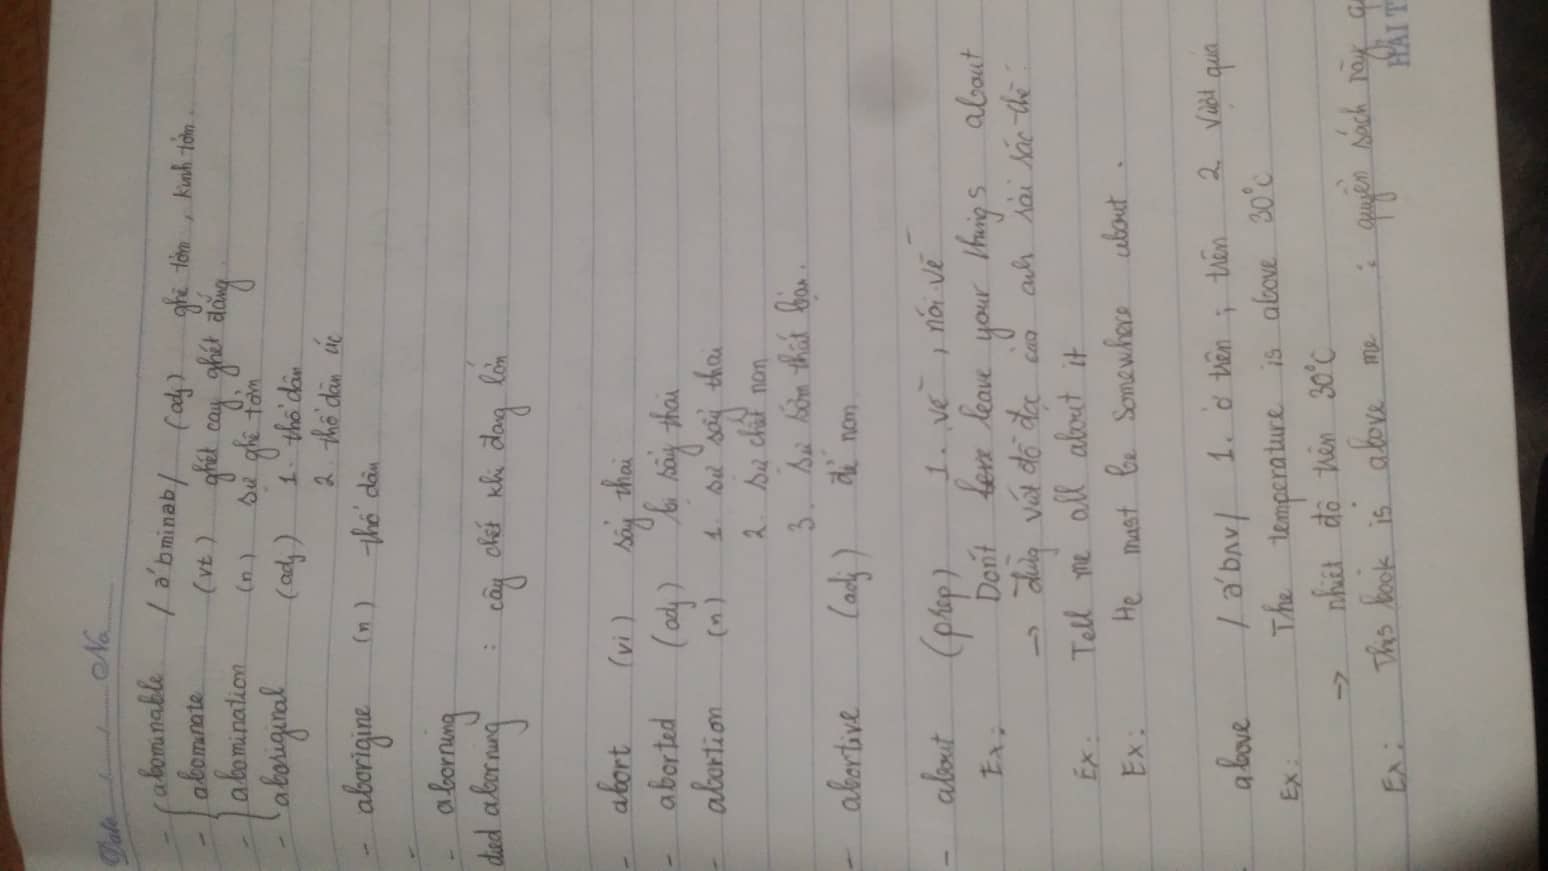 Date / / No
- abominable /ə'bminab/ (adj) ghê tởm, kinh tởm.
- abominate (vt) ghét cay, ghét đắng.
- abomination (n) sự ghê tởm
- aboriginal (adj) 1. thổ dân
2. thổ dân úc
- aborigine (n) thổ dân
- aborning
died aborning : cây chết khi đang lớn
- abort (vi) sảy thai
- aborted (adj) bị sảy thai
- abortion (n) 1. sự sảy thai
2. sự chết non
3. sự sớm thất bại.
- abortive (adj) đẻ non
- about (prep) 1. về, nói về
Ex: Don't leave your things about
→ đừng vứt đồ đạc của anh
Ex: Tell me all about it
Ex: He must be somewhere about.
above /ə'bʌv/ 1. ở trên; trên 2 vượt quá
Ex: The temperature is above 30°C
→ nhiệt độ trên 30°C
Ex: This book is above me : quyển sách này
HẢI T